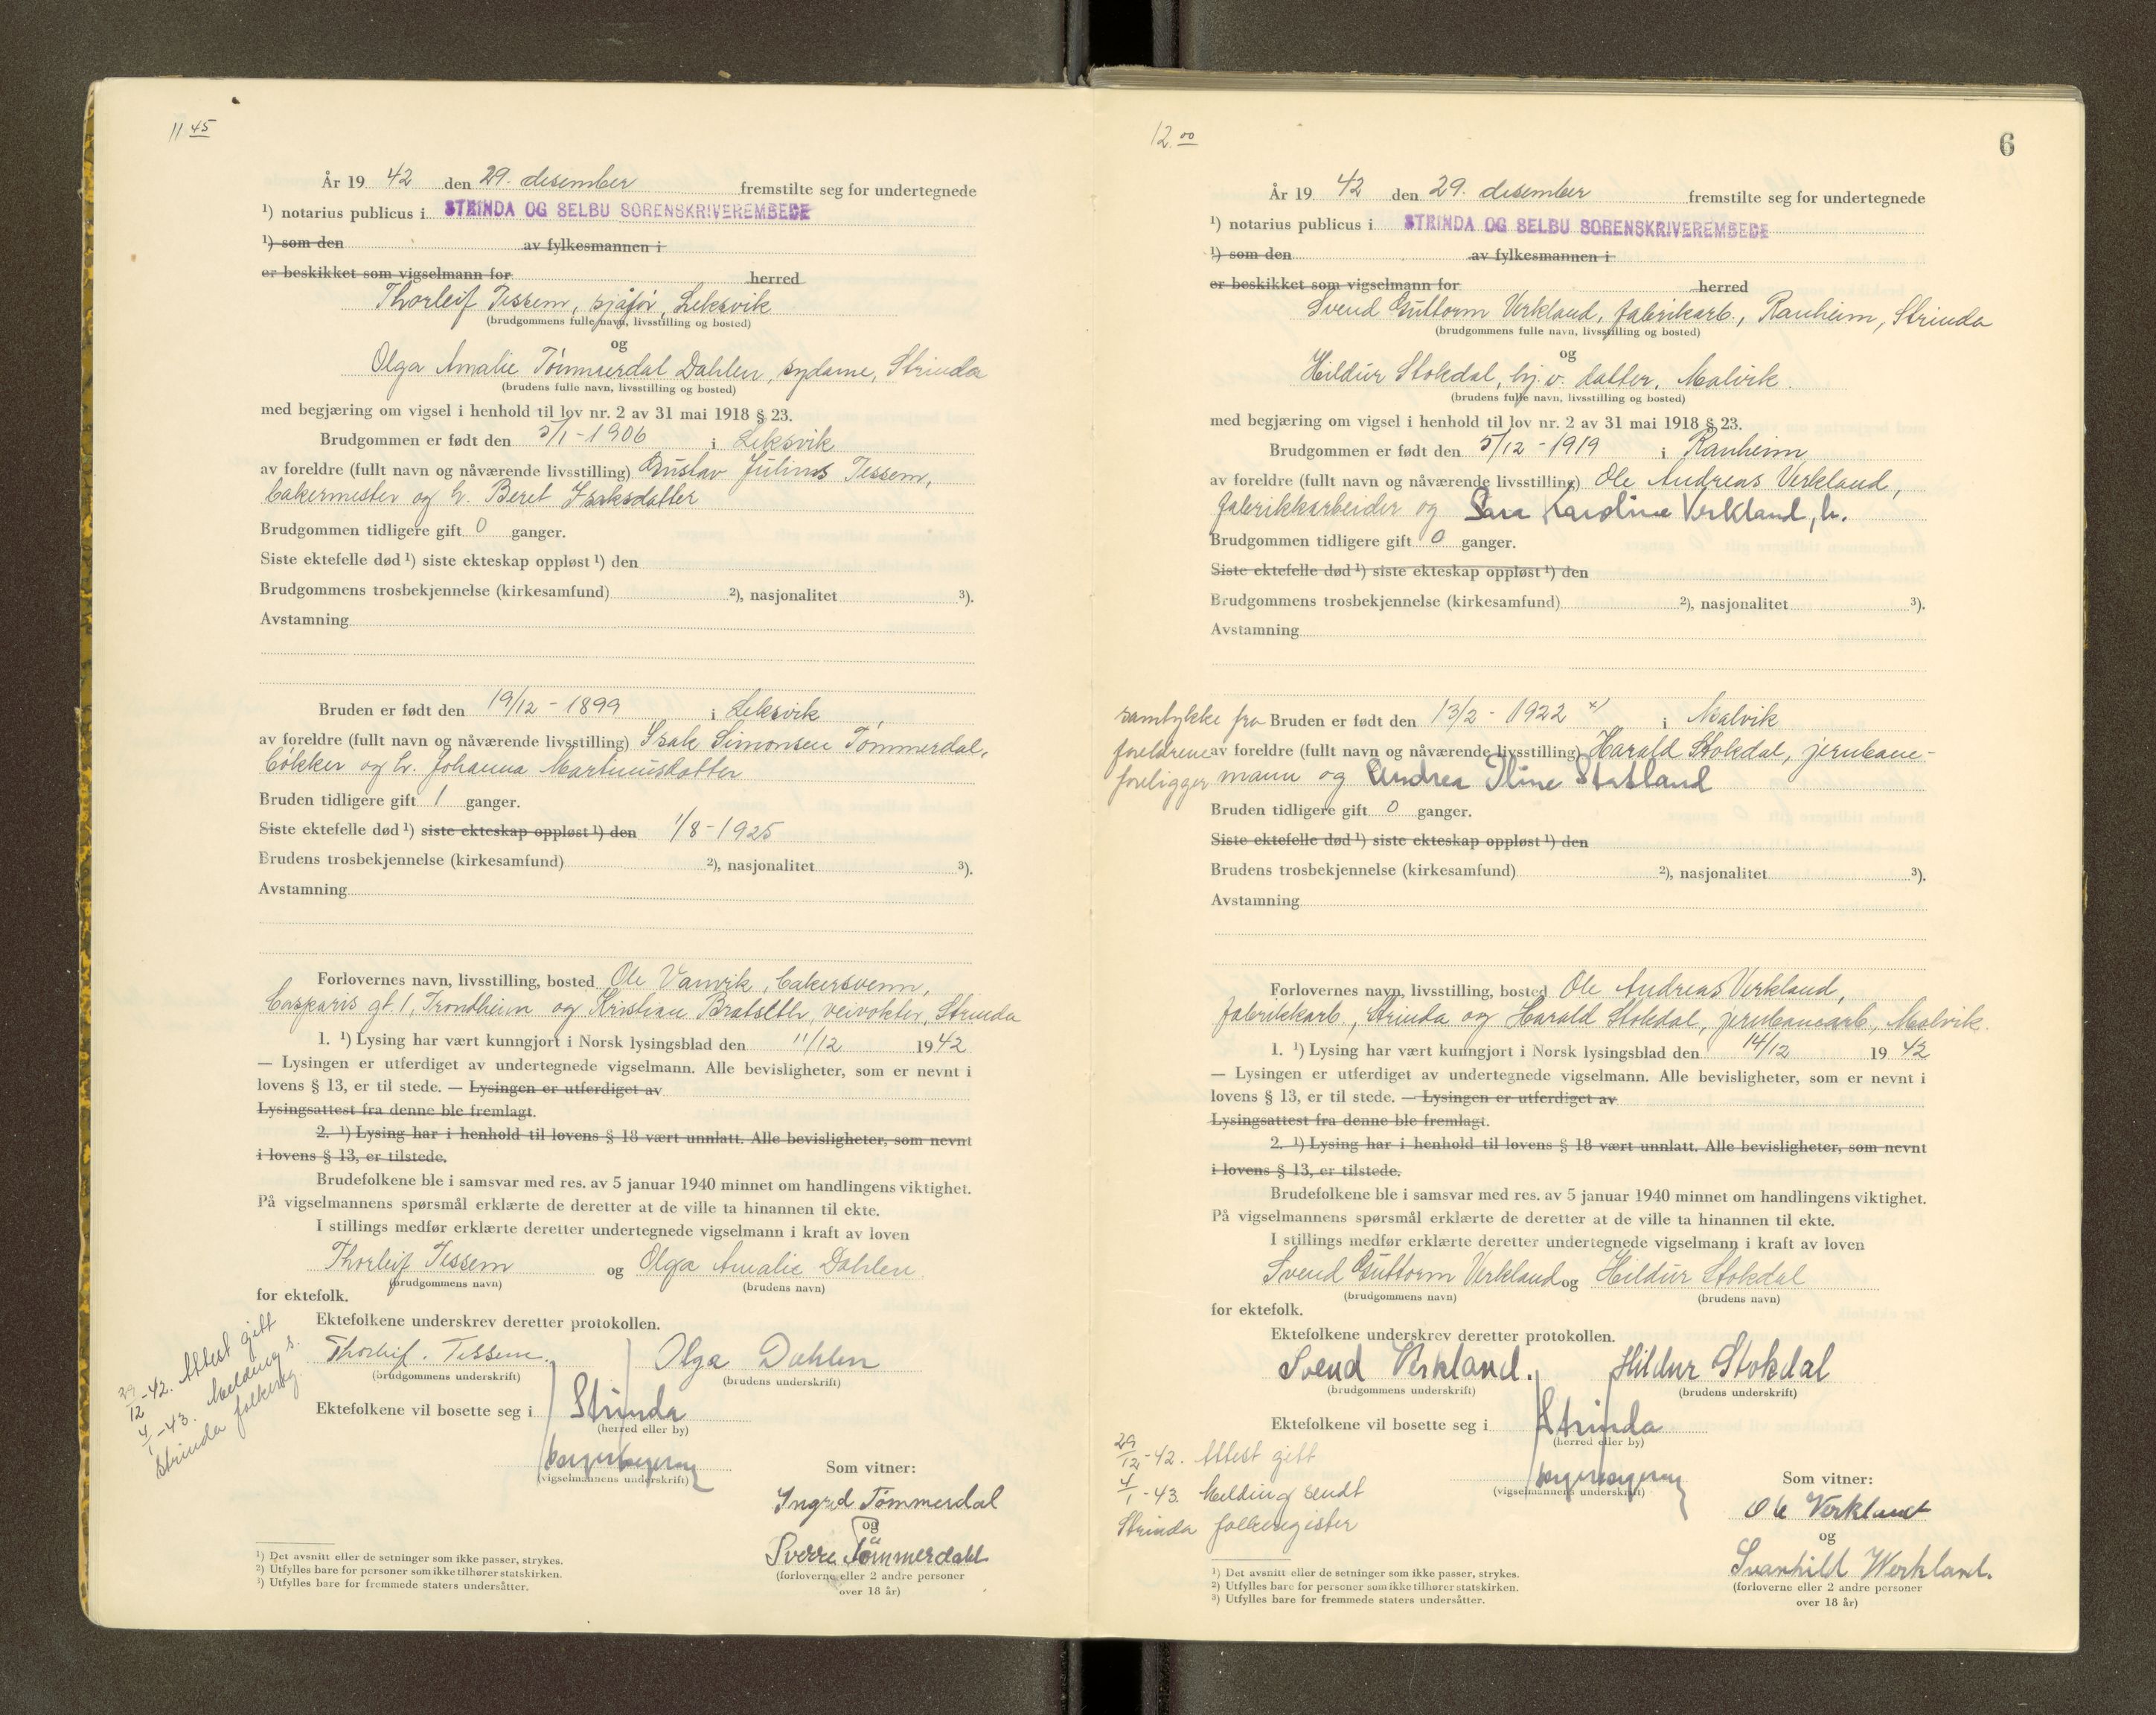 11 45
År 19 42 den 29. desember fremstilte seg for undertegnede
¹) notarius publicus i STRINDA OG SELBU SORENSKRIVEREMBEDE
¹) som den av fylkesmannen i
er beskikket som vigselmann for herred
Thorleif Tessem, sjåfør, Leksvik
(brudgommens fulle navn, livsstilling og bosted)
og
Olga Amalie Tömmerdal Dahlen, sydame, Strinda
(brudens fulle navn, livsstilling og bosted)
med begjæring om vigsel i henhold til lov nr. 2 av 31 mai 1918 § 23.
Brudgommen er født den 5/1-1906 i Leksvik
av foreldre (fullt navn og nåværende livsstilling) Gustav Julius Tessem,
bakermester og h. Beret Isaksdatter
Brudgommen tidligere gift 0 ganger.
Siste ektefelle død ¹) siste ekteskap oppløst ¹) den
Brudgommens trosbekjennelse (kirkesamfund) ²), nasjonalitet ³).
Avstamning
Bruden er født den 19/12 - 1899 i Leksvik
av foreldre (fullt navn og nåværende livsstilling) Isak Simonsen Tömmerdal,
bökker og h. Johanna Martinusdatter
Bruden tidligere gift 1 ganger.
Siste ektefelle død ¹) siste ekteskap oppløst ¹) den 1/8-1925
Brudens trosbekjennelse (kirkesamfund) ²), nasjonalitet ³).
Avstamning
Forlovernes navn, livsstilling, bosted Ole Vanvik, bakersvenn,
Casparis gt. 1, Trondheim og Kristian Bratseth, veivokter, Strinda
1. ¹) Lysing har vært kunngjort i Norsk lysingsblad den 11/12 1942
— Lysingen er utferdiget av undertegnede vigselmann. Alle bevisligheter, som er nevnt i
lovens § 13, er til stede. — Lysingen er utferdiget av
Lysingsattest fra denne ble fremlagt.
2. ¹) Lysing har i henhold til lovens § 18 vært unnlatt. Alle bevisligheter, som nevnt
i lovens § 13, er tilstede.
Brudefolkene ble i samsvar med res. av 5 januar 1940 minnet om handlingens viktighet.
På vigselmannens spørsmål erklærte de deretter at de ville ta hinannen til ekte.
I stillings medfør erklærte deretter undertegnede vigselmann i kraft av loven
Thorleif Tessem og Olga Amalie Dahlen
(brudgommens navn) (brudens navn)
for ektefolk.
Ektefolkene underskrev deretter protokollen.
Thorleif. Tessem. Olga Dahlen
(brudgommens underskrift) (brudens underskrift)
Ektefolkene vil bosette seg i Strinda
(herred eller by)
(vigselmannens underskrift)
29/12-42. Attest gitt
4/1-43. Melding s.
Strinda folkereg.
Som vitner:
Ingrid Tömmerdal
og
Sverre Tömmerdahl
(forloverne eller 2 andre personer
over 18 år)
¹) Det avsnitt eller de setninger som ikke passer, strykes.
²) Utfylles bare for personer som ikke tilhører statskirken.
³) Utfylles bare for fremmede staters undersåtter.
12.00
6
År 19 42 den 29. desember fremstilte seg for undertegnede
¹) notarius publicus i STRINDA OG SELBU SORENSKRIVEREMBEDE
¹) som den av fylkesmannen i
er beskikket som vigselmann for herred
Svend Guttorm Verkland, fabrikarb., Ranheim, Strinda
(brudgommens fulle navn, livsstilling og bosted)
og
Hildur Stokdal, hj.v. datter, Malvik.
(brudens fulle navn, livsstilling og bosted)
med begjæring om vigsel i henhold til lov nr. 2 av 31 mai 1918 § 23.
Brudgommen er født den 5/12-1919 i Ranheim
av foreldre (fullt navn og nåværende livsstilling) Ole Andreas Verkland,
fabrikkarbeider og Sara Karoline Verkland, h.
Brudgommen tidligere gift 0 ganger.
Siste ektefelle død ¹) siste ekteskap oppløst ¹) den
Brudgommens trosbekjennelse (kirkesamfund) ²), nasjonalitet ³).
Avstamning
samtykke fra
foreldrene
foreligger
Bruden er født den 13/2 - 1922 x/ i Malvik
av foreldre (fullt navn og nåværende livsstilling) Harald Stokdal, jernbane-
mann og Andrea Iline Statland
Bruden tidligere gift 0 ganger.
Siste ektefelle død ¹) siste ekteskap oppløst ¹) den
Brudens trosbekjennelse (kirkesamfund) ²), nasjonalitet ³).
Avstamning
Forlovernes navn, livsstilling, bosted Ole Andreas Verkland,
fabrikkarb., Strinda og Harald Stokdal, jernbanearb., Malvik.
1. ¹) Lysing har vært kunngjort i Norsk lysingsblad den 14/12 19 42
— Lysingen er utferdiget av undertegnede vigselmann. Alle bevisligheter, som er nevnt i
lovens § 13, er til stede. — Lysingen er utferdiget av
Lysingsattest fra denne ble fremlagt.
2. ¹) Lysing har i henhold til lovens § 18 vært unnlatt. Alle bevisligheter, som nevnt
i lovens § 13, er tilstede.
Brudefolkene ble i samsvar med res. av 5 januar 1940 minnet om handlingens viktighet.
På vigselmannens spørsmål erklærte de deretter at de ville ta hinannen til ekte.
I stillings medfør erklærte deretter undertegnede vigselmann i kraft av loven
Svend Guttorm Verkland og Hildur Stokdal
(brudgommens navn) (brudens navn)
for ektefolk.
Ektefolkene underskrev deretter protokollen.
Svend Verkland. Hildur Stokdal
(brudgommens underskrift) (brudens underskrift)
Ektefolkene vil bosette seg i Strinda
(herred eller by)
(vigselmannens underskrift)
29/12-42. Attest gitt
4/1-43. Melding sendt
Strinda folkeregister
Som vitner:
Ole Verkland
og
Svanhild Werkland.
(forloverne eller 2 andre personer
over 18 år)
¹) Det avsnitt eller de setninger som ikke passer, strykes.
²) Utfylles bare for personer som ikke tilhører statskirken.
³) Utfylles bare for fremmede staters undersåtter.